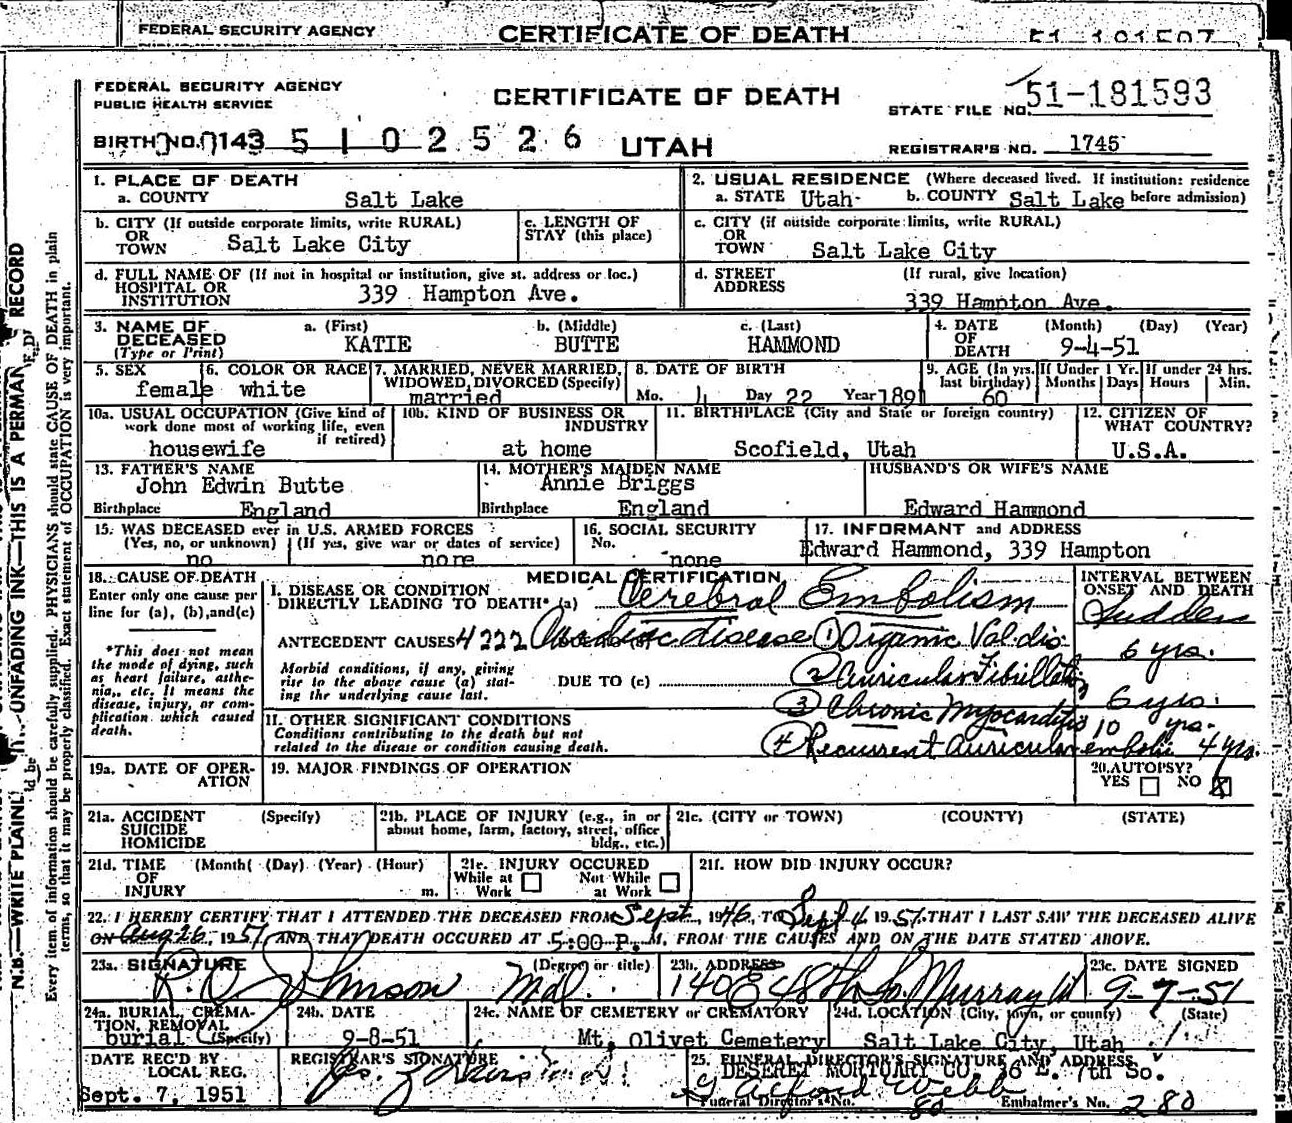 FEDERAL SECURITY AGENCY CERTIFICATE OF DEATH
FEDERAL SECURITY AGENCY
PUBLIC HEALTH SERVICE
CERTIFICATE OF DEATH
STATE FILE NO. 51-181593
BIRTH NO. 143 5 1 0 2 5 2 6 UTAH REGISTRAR'S NO. 1745
1. PLACE OF DEATH
a. COUNTY Salt Lake
2. USUAL RESIDENCE (Where deceased lived. If institution: residence
a. STATE Utah b. COUNTY Salt Lake before admission)
b. CITY (If outside corporate limits, write RURAL)
OR
TOWN Salt Lake City
c. LENGTH OF
STAY (this place)
c. CITY (if outside corporate limits, write RURAL)
OR
TOWN Salt Lake City
d. FULL NAME OF (If not in hospital or institution, give st. address or loc.)
HOSPITAL OR
INSTITUTION 339 Hampton Ave.
d. STREET (If rural, give location)
ADDRESS
339 Hampton Ave.
3. NAME OF
DECEASED
(Type or Print)
a. (First) b. (Middle) c. (Last)
KATIE BUTTE HAMMOND
4. DATE (Month) (Day) (Year)
OF
DEATH 9-4-51
5. SEX
female
6. COLOR OR RACE
white
7. MARRIED, NEVER MARRIED,
WIDOWED, DIVORCED (Specify)
married
8. DATE OF BIRTH
Mo. 4 Day 22 Year 1891
9. AGE (In yrs.
last birthday)
60
If Under 1 Yr.
Months Days
If under 24 hrs.
Hours Min.
10a. USUAL OCCUPATION (Give kind of
work done most of working life, even
if retired)
housewife
10b. KIND OF BUSINESS OR
INDUSTRY
at home
11. BIRTHPLACE (City and State or foreign country)
Scofield, Utah
12. CITIZEN OF
WHAT COUNTRY?
U.S.A.
13. FATHER'S NAME
John Edwin Butte
Birthplace England
14. MOTHER'S MAIDEN NAME
Annie Briggs
Birthplace England
HUSBAND'S OR WIFE'S NAME
Edward Hammond
15. WAS DECEASED ever in U.S. ARMED FORCES
(Yes, no, or unknown) (If yes, give war or dates of service)
no none
16. SOCIAL SECURITY
No.
none
17. INFORMANT and ADDRESS
Edward Hammond, 339 Hampton
18. CAUSE OF DEATH
Enter only one cause per
line for (a), (b), and (c)
*This does not mean
the mode of dying, such
as heart failure, asthe-
nia, etc. It means the
disease, injury, or com-
plication which caused
death.
MEDICAL CERTIFICATION
I. DISEASE OR CONDITION
DIRECTLY LEADING TO DEATH* (a) Cerebral Embolism
ANTECEDENT CAUSES 4222 Cardiac disease (1) Organic Val dis.
Morbid conditions, if any, giving
rise to the above cause (a) stat-
ing the underlying cause last.
DUE TO (c) (2) Auricular Fibrillation
(3) Chronic Myocarditis
II. OTHER SIGNIFICANT CONDITIONS
Conditions contributing to the death but not
related to the disease or condition causing death.
(4) Recurrent auricular emboli 4 yrs.
INTERVAL BETWEEN
ONSET AND DEATH
Sudden
6 yrs.
6 yrs.
10 yrs.
19a. DATE OF OPER-
ATION
19. MAJOR FINDINGS OF OPERATION
20. AUTOPSY?
YES NO X
21a. ACCIDENT (Specify)
SUICIDE
HOMICIDE
21b. PLACE OF INJURY (e.g., in or
about home, farm, factory, street, office
bldg., etc.)
21c. (CITY or TOWN) (COUNTY) (STATE)
21d. TIME (Month) (Day) (Year) (Hour)
OF
INJURY m.
21e. INJURY OCCURED
While at Not While
Work at Work
21f. HOW DID INJURY OCCUR?
22. I HEREBY CERTIFY THAT I ATTENDED THE DECEASED FROM Sept. 1946, TO Sept 4 1951, THAT I LAST SAW THE DECEASED ALIVE
ON Aug 26, 1951 AND THAT DEATH OCCURED AT 5:00 P. M, FROM THE CAUSES AND ON THE DATE STATED ABOVE.
23a. SIGNATURE (Degree or title)
Johnson M.D.
23b. ADDRESS
140 E 48th So. Murray Ut
23c. DATE SIGNED
9-7-51
24a. BURIAL, CREMA-
TION, REMOVAL
burial (Specify)
24b. DATE
9-8-51
24c. NAME OF CEMETERY or CREMATORY
Mt. Olivet Cemetery
24d. LOCATION (City, town, or county) (State)
Salt Lake City, Utah
DATE REC'D BY
LOCAL REG.
Sept. 7, 1951
REGISTRAR'S SIGNATURE
25. FUNERAL DIRECTOR'S SIGNATURE AND ADDRESS
DESERET MORTUARY CO. 36 E. 7th So.
Webb
Funeral Director's No. 80 Embalmer's No. 280
N.B.—WRITE PLAINL UNFADING INK—THIS IS A PERMAN RECORD
Every item of information should be carefully supplied. PHYSICIANS should state CAUSE OF DEATH in plain
terms, so that it may be properly classified. Exact statement of OCCUPATION is very important.